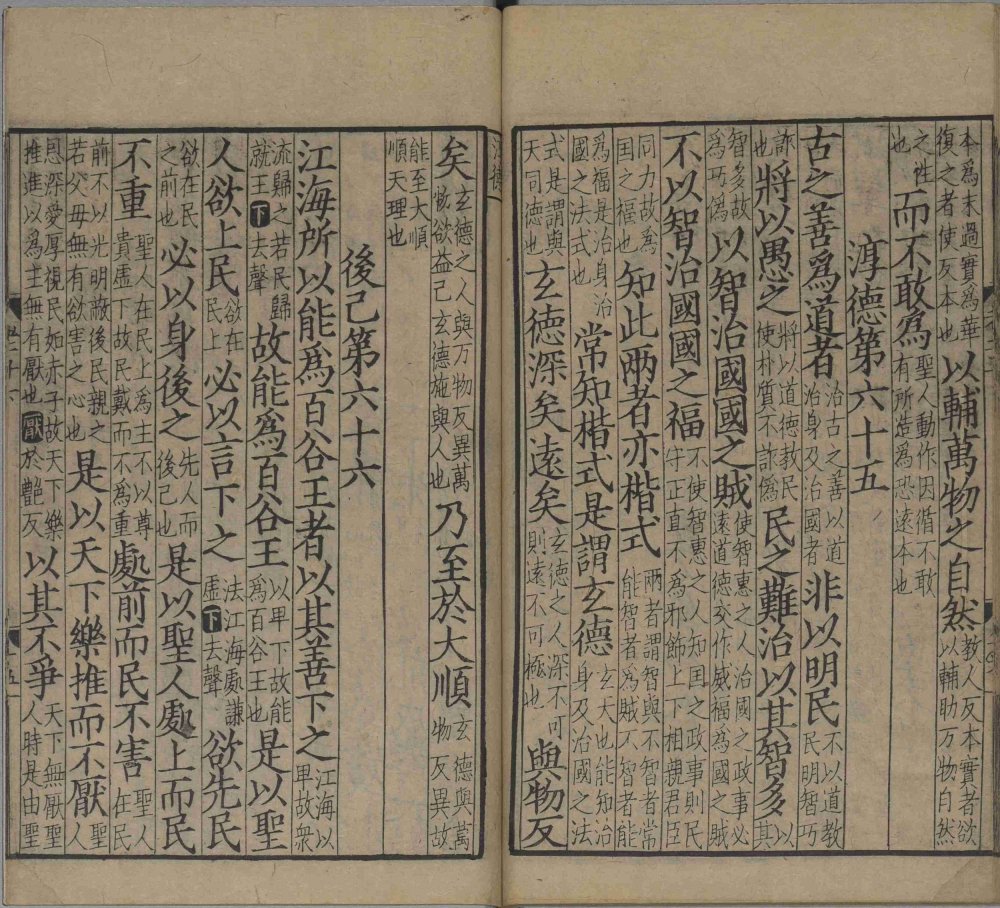 本為末過實為華復之者使反本也以輔萬物之自然教人反本實者欲以輔助万物自然
之性也而不敢為聖人動作因循不敢有所造為恐遠本也
淳德第六十五
古之善爲道者治古之善以道治身及治國者非以明民不以道教民明智巧
詐也將以愚之將以道德教民使朴質不詐僞民之難治以其智多以其
智多故為巧偽以智治國國之賊使智惠之人治國之政事必遠道德妄作威福為國之賊
不以智治國國之福不使智惠之人知国之政事則民守正直不為邪飾上下相親君臣
同力故為国之福也知此兩者亦楷式兩者謂智與不智者常能智者為賊不智者能
為福是治身治國之法式也常知楷式是謂玄德玄大也能知治身及治國之法
式是謂與天同德也玄德深矣遠矣玄德之人深不可則遠不可極也與物反
矣玄德之人與万物反異萬物欲益己玄德施與人也乃至於大順玄德與萬物反異故
能至大順順天理也
後己第六十六
江海所以能爲百谷王者以其善下之江海以卑故衆
流歸之若民歸就王下去聲故能爲百谷王以卑下故能為百谷王也是以聖
人欲上民欲在民上必以言下之法江海處謙虛下去聲欲先民
欲在民之前也必以身後之先人而後己也是以聖人處上而民
不重聖人在民上為主不以尊貴虛下故民戴而不為重處前而民不害聖人在民
前不以光明蔽後民親之若父母無有欲害之心也是以天下樂推而不厭聖人
恩深愛厚視民如赤子故天下樂推進以為主無有厭也厭於艷反以其不爭天下無厭聖人時是由聖